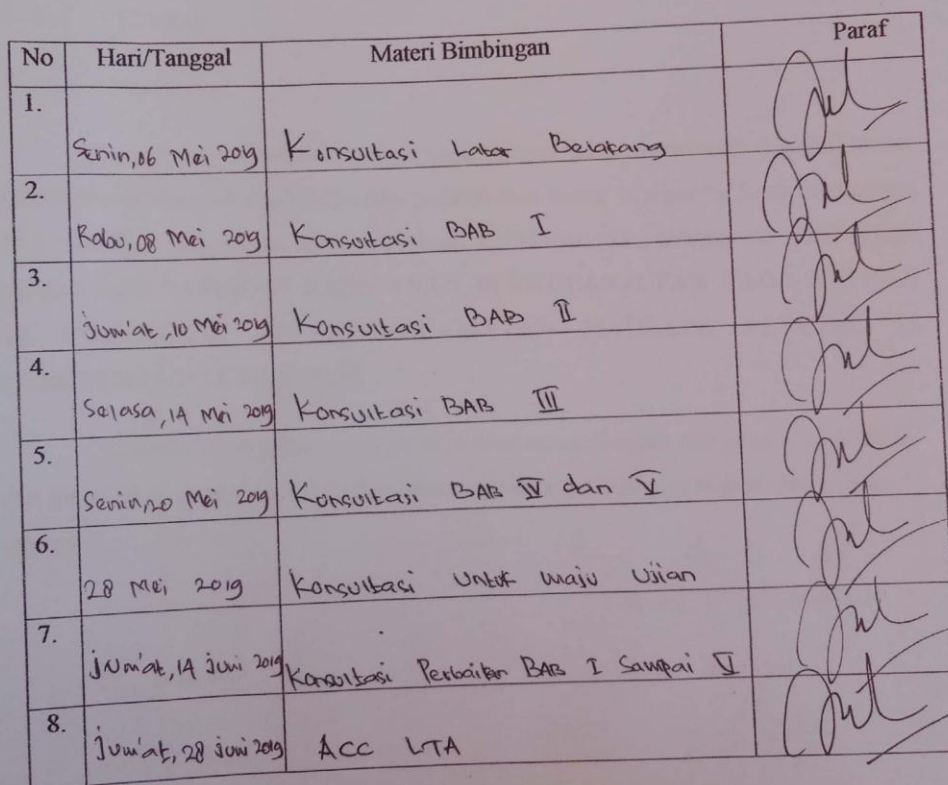 No Hari/Tanggal Materi Bimbingan Paraf
1. Senin, 06 Mei 2019 Konsultasi Latar Belakang
2. Rabu, 08 Mei 2019 Konsultasi BAB I
3. Jum'at, 10 Mei 2019 Konsultasi BAB II
4. Selasa, 14 Mei 2019 Konsultasi BAB III
5. Senin, 20 Mei 2019 Konsultasi BAB IV dan V
6. 28 Mei 2019 Konsultasi Untuk maju Ujian
7. Jum'at, 14 Juni 2019 Konsultasi Perbaikan BAB I Sampai V
8. Jum'at, 28 Juni 2019 ACC LTA